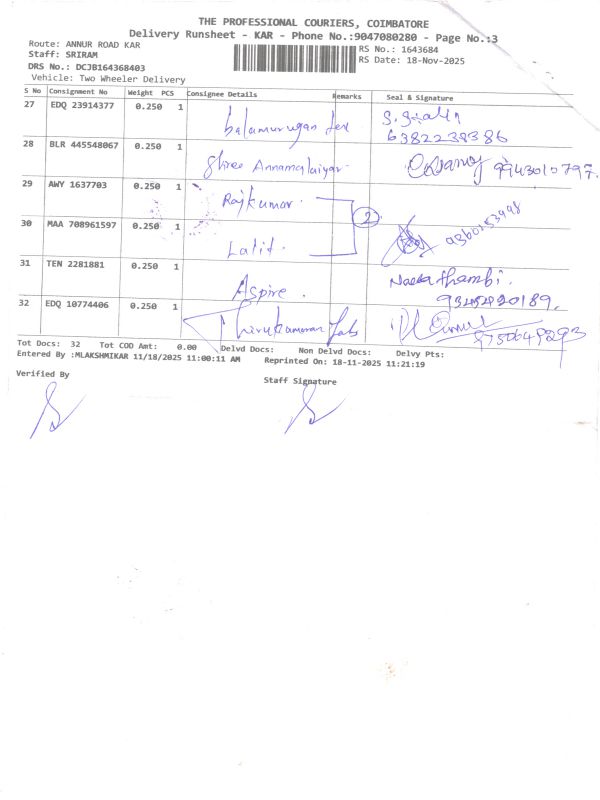 THE PROFESSIONAL COURIERS, COIMBATORE
Delivery Runsheet - KAR - Phone No.:9047080280 - Page No.:3
Route: ANNUR ROAD KAR
RS No.: 1643684
Staff: SRIRAM
RS Date: 18-Nov-2025
DRS No.: DCJB164368403
Vehicle: Two Wheeler Delivery
S No Consignment No Weight PCS Consignee Details Remarks Seal & Signature
27 EDQ 23914377 0.250 1 balamurugan tex
6382238386
28 BLR 445548067 0.250 1 Shree Annamalaiyar 9943010797.
29 AWY 1637703 0.250 1 Rajkumar.
2
30 MAA 708961597 0.250 1 Lalit.
31 TEN 2281881 0.250 1 Aspire.
32 EDQ 10774406 0.250 1
Tot Docs: 32 Tot COD Amt: 0.00 Delvd Docs: Non Delvd Docs: Delvy Pts:
Entered By :MLAKSHMIKAR 11/18/2025 11:00:11 AM Reprinted On: 18-11-2025 11:21:19
Verified By
Staff Signature